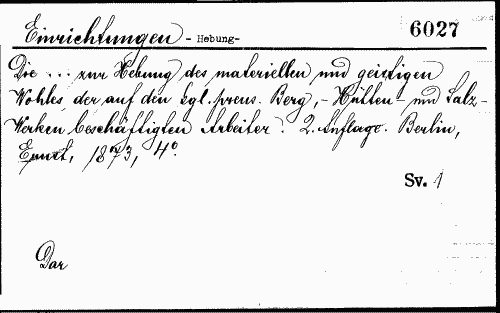 Einrichtungen - Hebung-
6027
Die ... zur Hebung des materiellen und geistigen
Wohles der auf den kgl. preus. Berg,- Hütten- und Salz-
Werken beschäftigten Arbeiter. 2. Auflage. Berlin,
Ernst, 1873, 4°.
Sv. 1
Dar